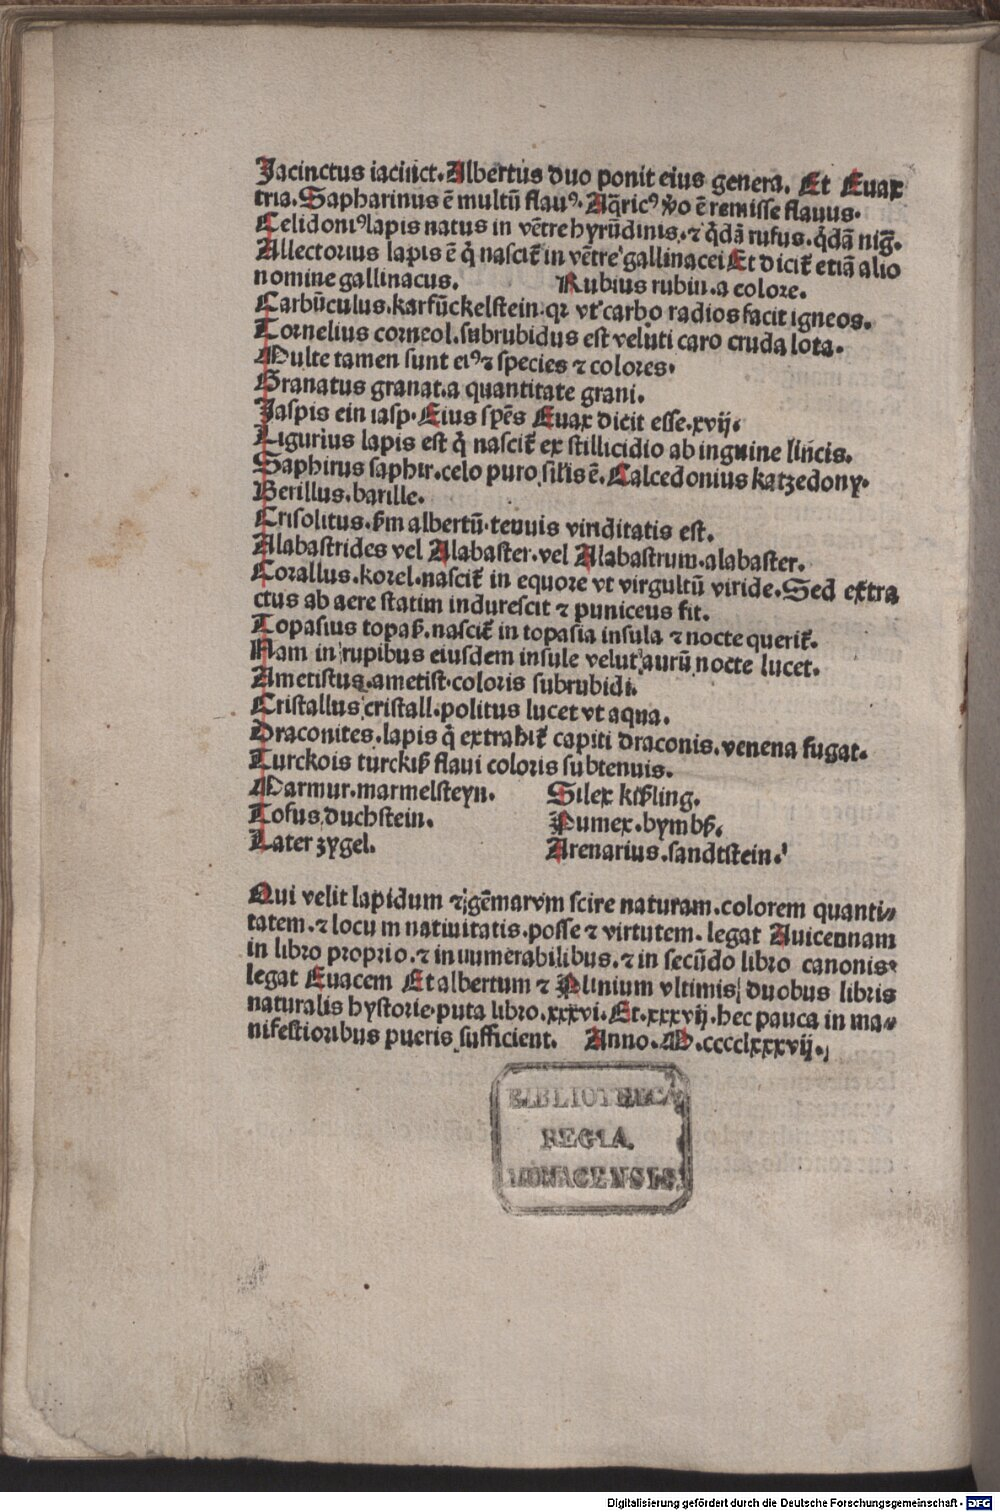 Jacinctus iacinct. Albertus duo ponit eius genera. Et Euax
tria. Sapharinus ē multū flauꝰ. Aq̄ricꝰ ꝟo ē remisse flauus.
Celidoniꝰ lapis natus in vētre hyrūdinis. ⁊ q̄dā rufus. q̄dā nig̅.
Allectorius lapis ē q̄ nascit̄ in vētre gallinacei Et dicit̄ etiā alio
nomine gallinacus. Rubius rubin. a colore.
Carbūculus. karfūckelstein. qꝛ vt carbo radios facit igneos.
Cornelius corneol. subrubidus est veluti caro cruda lota.
Multe tamen sunt eiꝰ ⁊ species ⁊ colores.
Granatus granat. a quantitate grani.
Jaspis ein iasp. Eius sp̄es Euax dicit esse. xvij.
Ligurius lapis est q̄ nascit̄ ex stillicidio ab inguine lincis.
Saphirus saphir. celo puro sil̄is ē. Calcedonius katzedony.
Berillus. barille.
Crisolitus. ẜm albertū. tenuis viriditatis est.
Alabastrides vel Alabaster. vel Alabastrum. alabaster.
Corallus. korel. nascit̄ in equore vt virgultū viride. Sed extra
ctus ab aere statim indurescit ⁊ puniceus fit.
Topasius topaß. nascit̄ in topasia insula ⁊ nocte querit̄.
Nam in rupibus eiusdem insule velut aurū nocte lucet.
Ametistus ametist. coloris subrubidi.
Cristallus cristall. politus lucet vt aqua.
Draconites. lapis q̄ extrahit̄ capiti draconis. venena fugat.
Turckois turckiß flaui coloris subtenuis.
Marmur. marmelsteyn. Silex kißling.
Tofus duchstein. Pumex. bymbß.
Later zygel. Arenarius. sandtstein.
Qui velit lapidum ⁊ gēmarvm scire naturam. colorem quanti⸗
tatem. ⁊ locum natiuitatis. posse ⁊ virtutem. legat Auicennam
in libro proprio. ⁊ innumerabilibus. ⁊ in secūdo libro canonis.
legat Euacem Et albertum ⁊ Plinium vltimis duobus libris
naturalis hystorie. puta libro. xxxvi. Et. xxxvij. hec pauca in ma⸗
nifestioribus pueris sufficient. Anno. M. cccclxxxvij.
BIBLIOTHECA
REGIA
MONACENSIS.
Digitalisierung gefördert durch die Deutsche Forschungsgemeinschaft - DFG